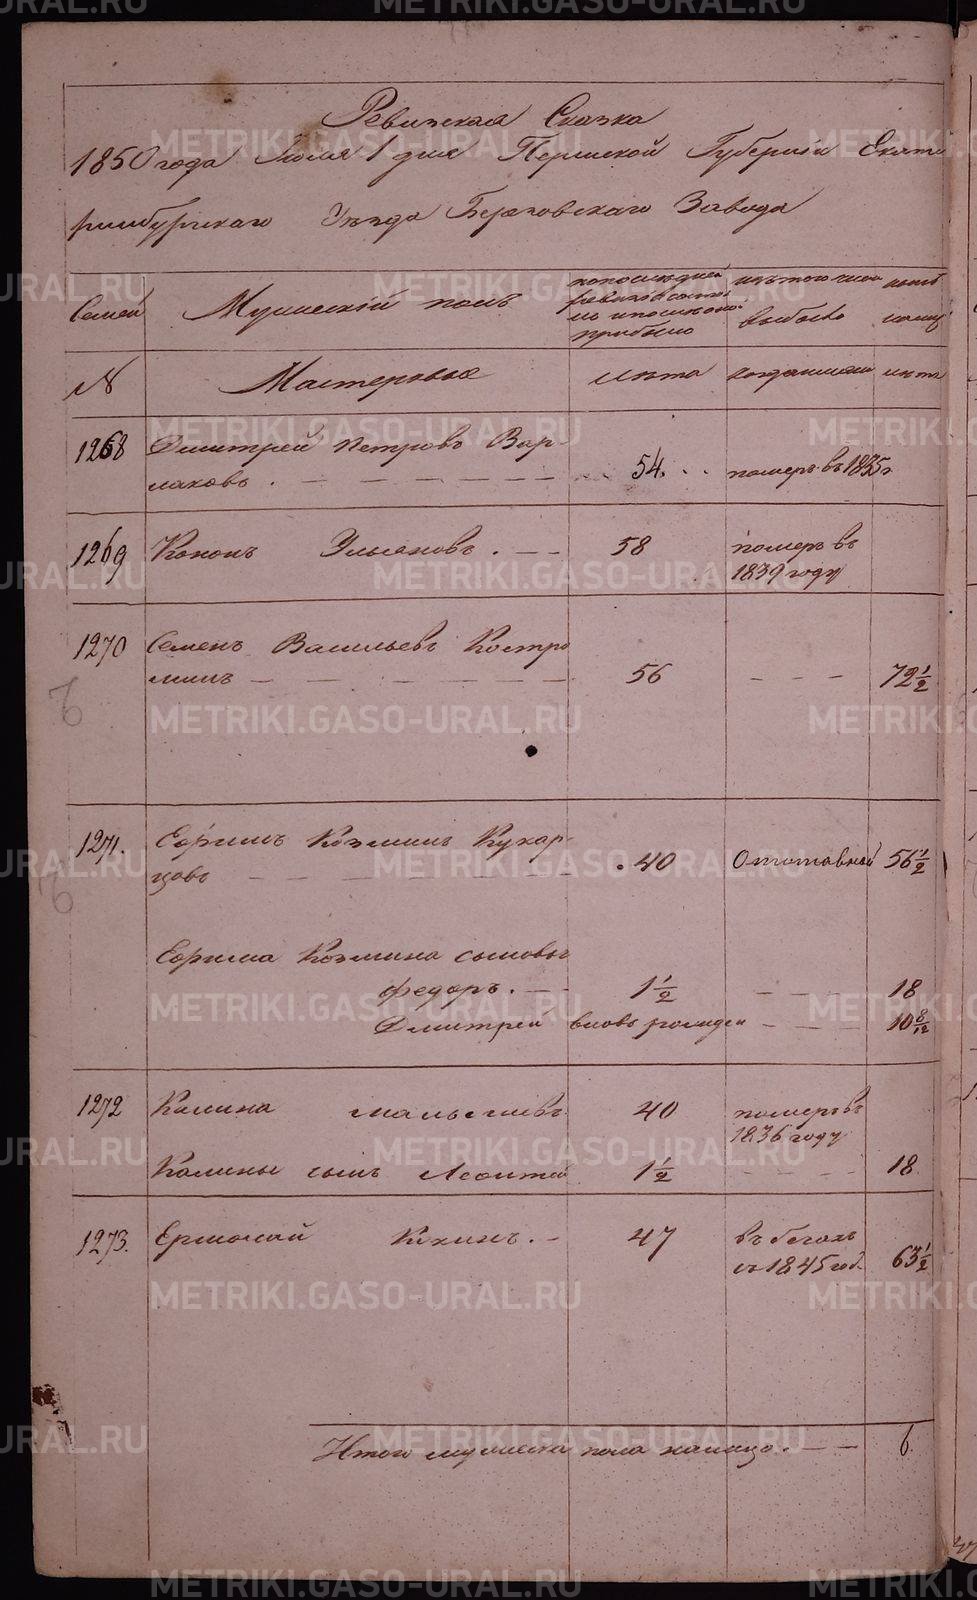 Ревизская Сказка
1850 года Июля 1 дня Пермской Губернии Екате
ринбургскаго Уезда Березовскаго Завода
Семей
Мужеской полъ
по последней
ревизіи состо
прибыло
изъ того числа
выбыло
ныне
налицо
№
Мастеровые
лета
когда именно
лета
1268
Дмитрей Петровъ Вар-
лаковъ.
54.
померъ въ 1835 г.
1269
Кононъ
58
померъ въ
1839 году
1270
Семенъ Васильевъ Костро
минъ
56
72 1/2
1271.
Ефимъ Козминъ Кухар-
цовъ
40
Отставной
56 1/2
Ефима Козмина сыновья
Федоръ.
1 1/2
18
Дмитрей вновь рожден
10 8/12
1272
Калина Малышевъ
40
померъ въ
1836 году
Калины сынъ Леонтей
1 1/2
18
1273.
Ермолай Кокинъ.
47
въ бегахъ
съ 1845 год.
63 1/2
Итого мужеска пола налицо.
6.
METRIKI.GASO-URAL.RU